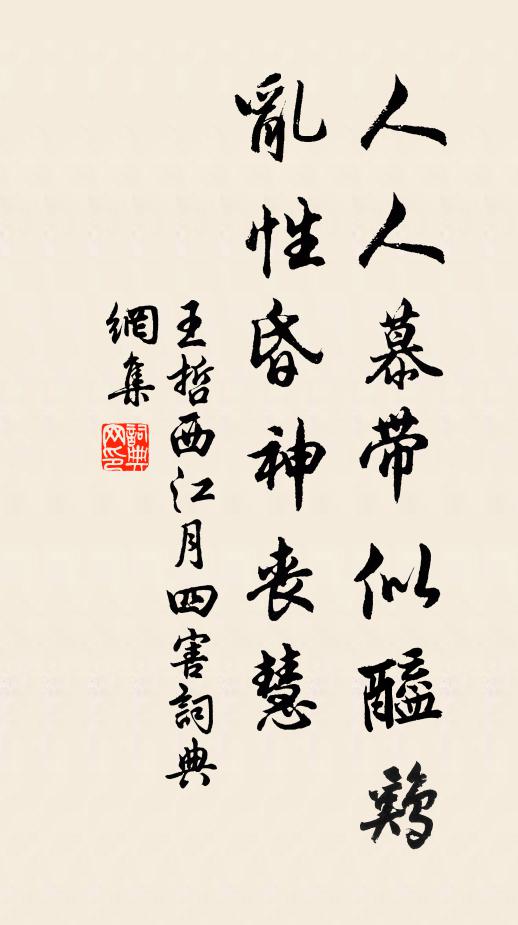 人人慕带似醯鷄
亂性昏神丧慧
王哲西江月四害詞典
網集
詞典
网印